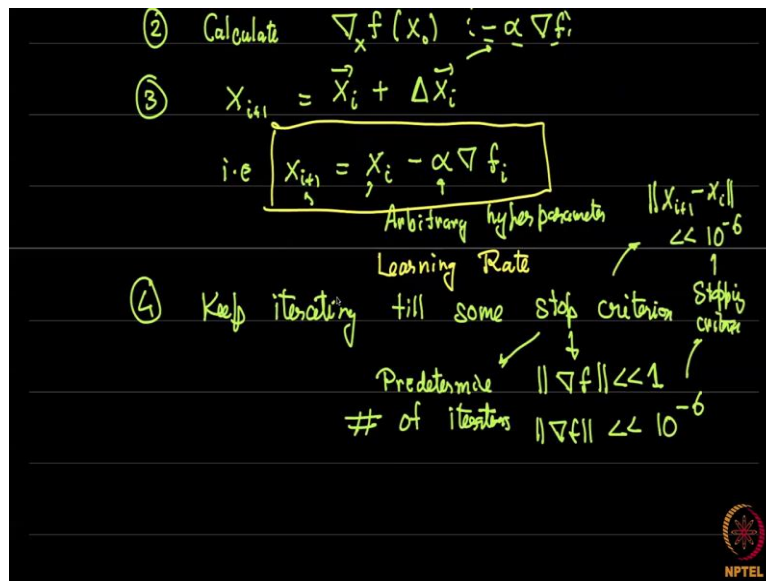 ② Calculate ∇ₓ f (X₀) : - α ∇fᵢ
③ Xᵢ₊₁ = X⃗ᵢ + ΔX⃗ᵢ
i.e Xᵢ₊₁ = Xᵢ - α ∇ fᵢ
Arbitrary hyperparameter
Learning Rate
||Xᵢ₊₁ - Xᵢ||
<< 10⁻⁶
④ Keep iterating till some stop criterion
Predetermine
# of
||∇f|| << 1
||∇f|| << 10⁻⁶
NPTEL